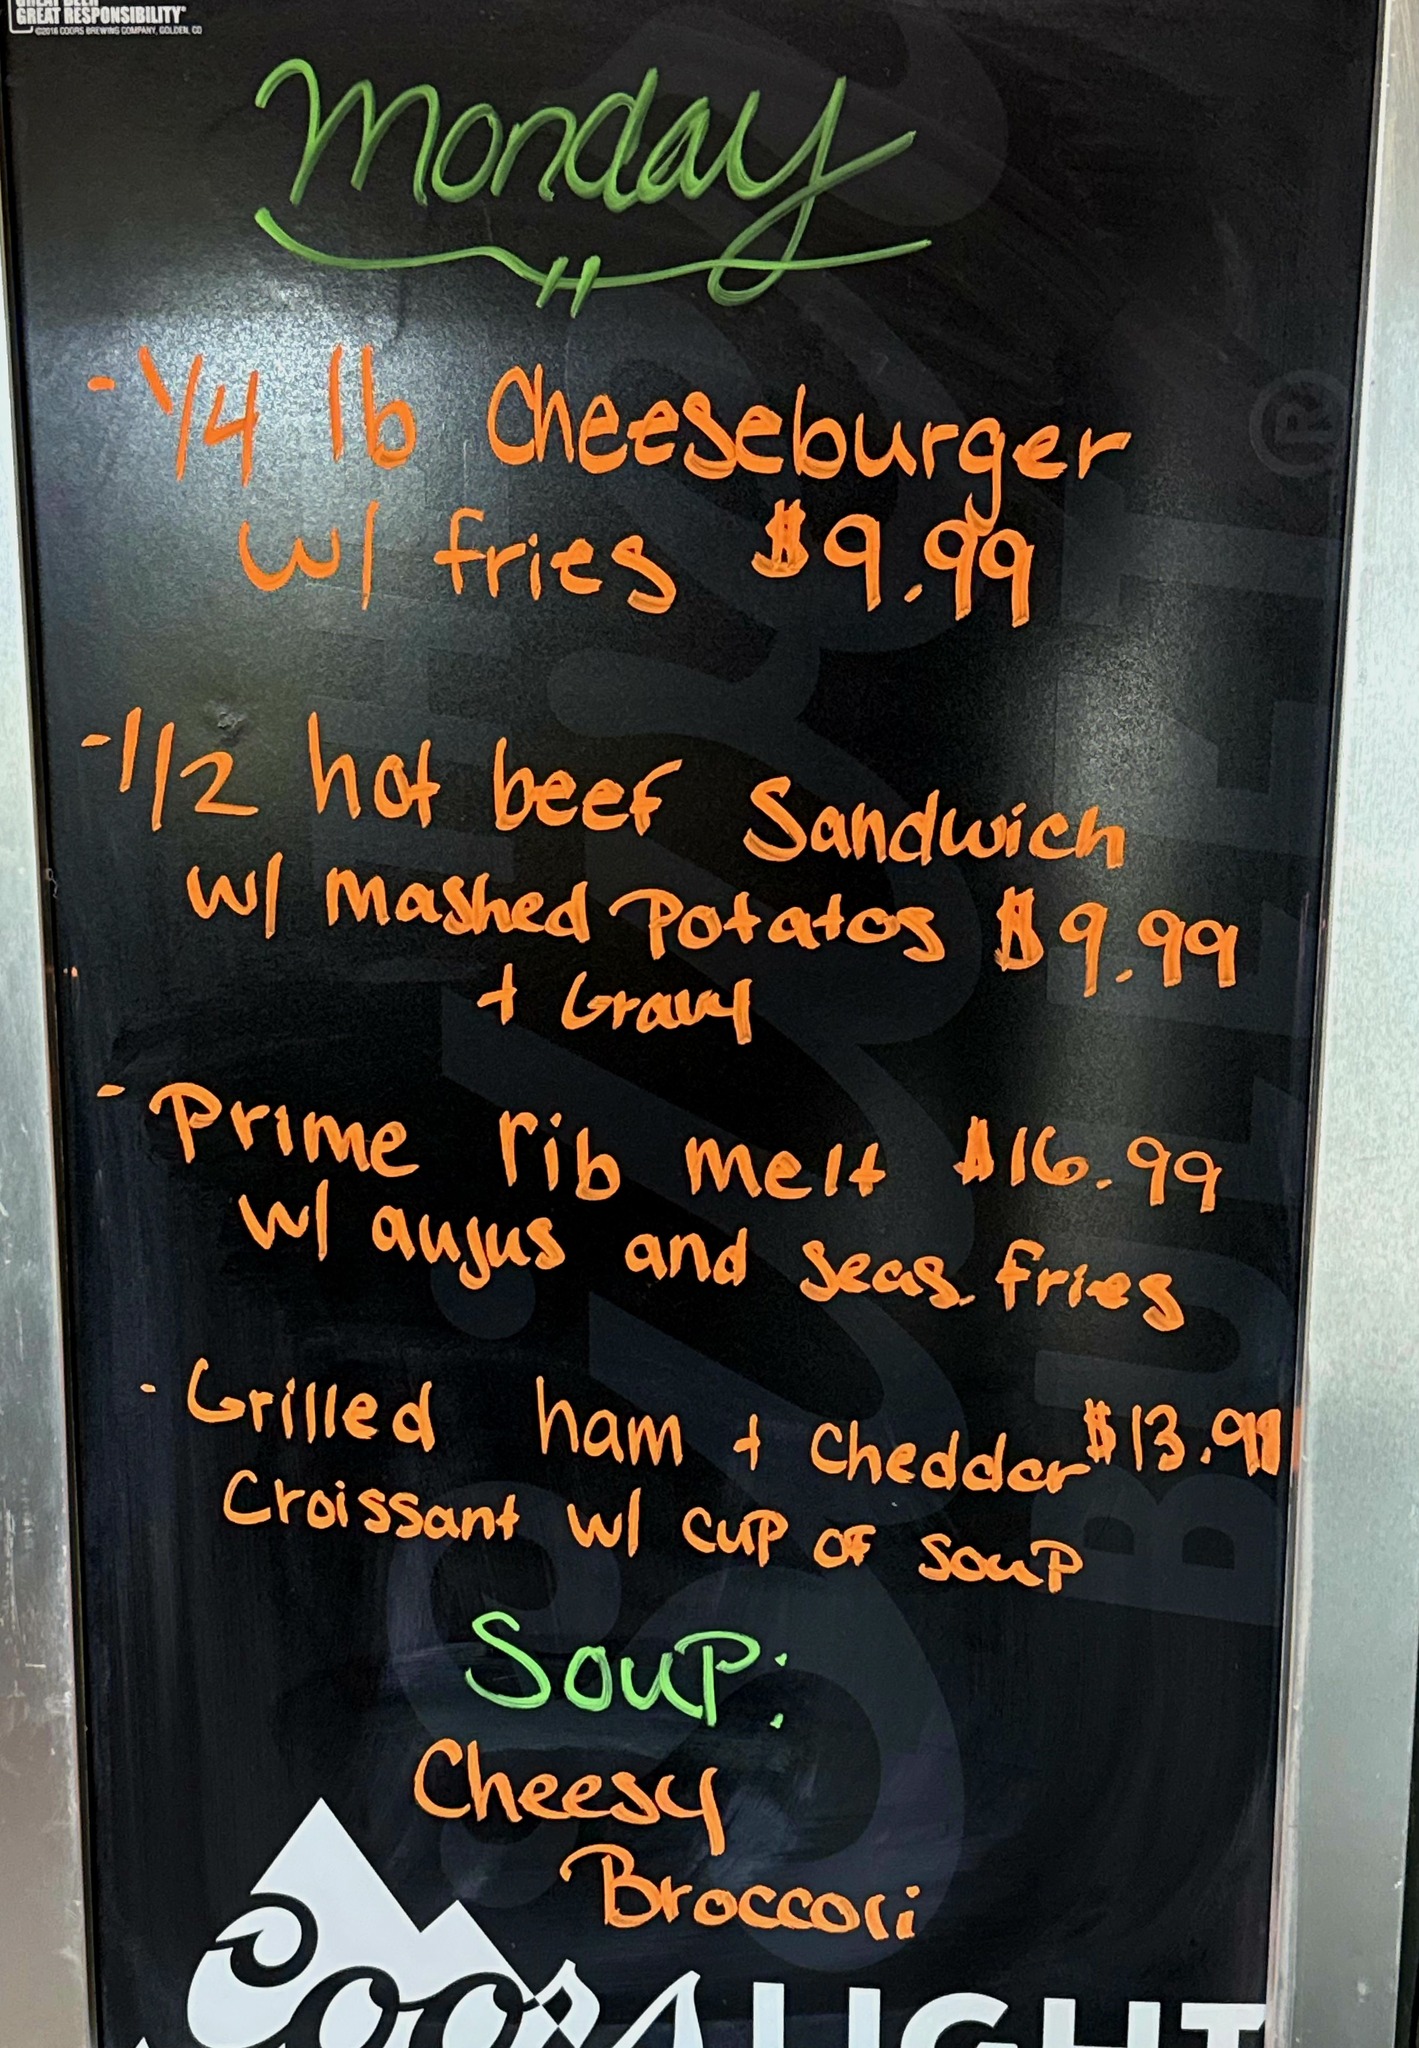 GREAT BEER
GREAT RESPONSIBILITY®
©2016 COORS BREWING COMPANY, GOLDEN, CO
Monday
- 1/4 lb Cheeseburger
w/ fries $9.99
- 1/2 hot beef Sandwich
w/ mashed Potatos $9.99
+ Gravy
- Prime rib melt $16.99
w/ aujus and seas. fries
- Grilled ham + cheddar $13.99
Croissant w/ cup of soup
Soup:
Cheesy
Broccori
Coors LIGHT
SILVER BULLET®